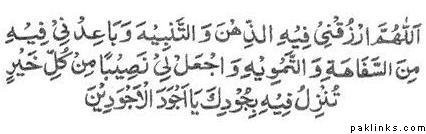 اَللّٰهُمَّ ارْزُقْنِيْ فِيْهِ الذِّهْنَ وَالتَّنْبِيْهَ وَبَاعِدْنِيْ فِيْهِ
مِنَ السَّفَاهَةِ وَالتَّمْوِيْهِ وَاجْعَلْ لِيْ نَصِيْبًا مِنْ كُلِّ خَيْرٍ
تُنْزِلُ فِيْهِ بِجُوْدِكَ يَا اَجْوَدَ الْاَجْوَدِيْنَ
paklinks.com